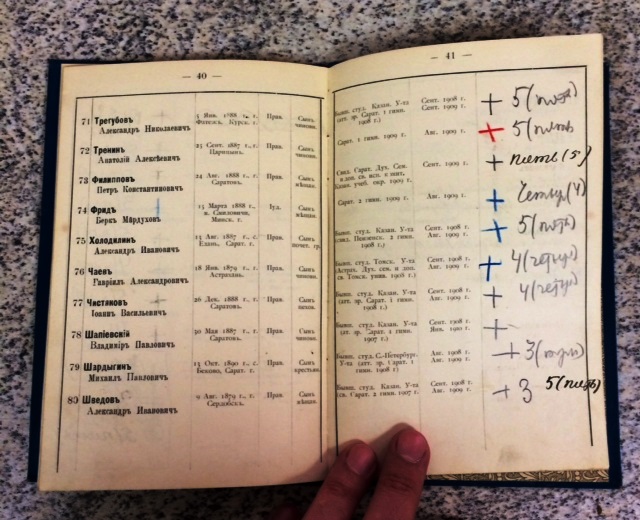 — 40 —
71 Трегубовъ
Александръ Николаевичъ
5 Янв. 1888 г., г.
Фатежъ, Курск. г.
Прав.
Сынъ
чиновн.
72 Тренинъ
Анатолій Алексѣевичъ
23 Сент. 1887 г., г.
Царицынъ.
Прав.
Сынъ
чиновн.
73 Филипповъ
Петръ Константиновичъ
24 Авг. 1888 г., г.
Саратовъ.
Прав.
Сынъ
мѣщан.
74 Фридъ
Беркъ Мордуховъ
15 Марта 1888 г.,
Минск. г.
Іуд.
Сынъ
мѣщан.
75 Холодилинъ
Александръ Ивановичъ
13 Авг. 1887 г., с.
Елань, Сарат. г.
Прав.
Сынъ
почет. гр.
76 Чаевъ
Гавріилъ Александровичъ
18 Янв. 1879 г., г.
Астрахань.
Прав.
Сынъ
чиновн.
77 Чистяковъ
Іоаннъ Васильевичъ
26 Дек. 1888 г., г.
Саратовъ.
Прав.
Сынъ
78 Шапіевскій
Владиміръ Павловичъ
30 Мая 1887 г., г.
Саратовъ.
Прав.
Сынъ
чиновн.
79 Шардыгинъ
Михаилъ Павловичъ
15 Окт. 1890 г., с.
Беково, Сарат. г.
Прав.
Сынъ
крестьян.
80 Шведовъ
Александръ Ивановичъ
9 Авг. 1879 г., г.
Сердобскъ.
Прав.
Сынъ
мѣщан.
— 41 —
Бывш. студ. Казан. У-та
(ат. зр. Сарат. 1 гимн.
1908 г.)
Сент. 1908 г.
Авг. 1909 г.
+ 5 (пять)
Сарат. 1 гимн. 1909 г.
Авг. 1909 г.
+ 5 (пять
Свид. Сарат. Дух. Сем.
и доп. св. исп. к-мит.
Казан. учеб. окр. 1909 г.
Сент. 1909 г.
+ пять (5)
Сарат. 2 гимн. 1909 г.
Авг. 1909 г.
+ Четыре (4)
Бывш. студ. Казан. У-та
(свид. Пензенск. 2 гимн.
1908 г.)
Сент. 1908 г.
Авг. 1909 г.
+ 5 (пять)
Бывш. студ. Томск. У-та
(Астрах. Дух. сем. и доп.
св. Томск. унив. 1908 г.)
Авг. 1908 г.
Авг. 1909 г.
+ 4 (четыре)
Бывш. студ. Казан. У-та
(ат. зр. Сарат. 1 гимн.
1908 г.)
Сент. 1908 г.
Авг. 1909 г.
+ 4 (четыре)
Бывш. студ. Казан. У-та
(ат. зр. Сарат. 1 гимн.
1907 г.)
Сент. 1908 г.
Янв. 1910 г.
+
Бывш. студ. С.-Петербург.
У-та (ат. зр. Сарат. 1
гимн. 1908 г.)
Авг. 1908 г.
Авг. 1909 г.
+ 3 (три)
Бывш. студ. Казан. У-та
(св. Сарат. 2 гимн. 1907 г.)
Сент. 1908 г.
Авг. 1909 г.
+ 3 5 (пять)